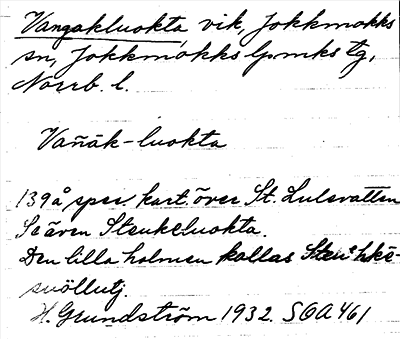 Vangakluokta vik, Jokkmokks
sn, Jokkmokks lpmks tg,
Norrb. l.
Vañāk-luokta
139 å spec kart. över St. Lulevatten
Se även Steukeluokta.
Den lilla holmen kallas
suōllutj.
H. Grundström 1932. SOA 461